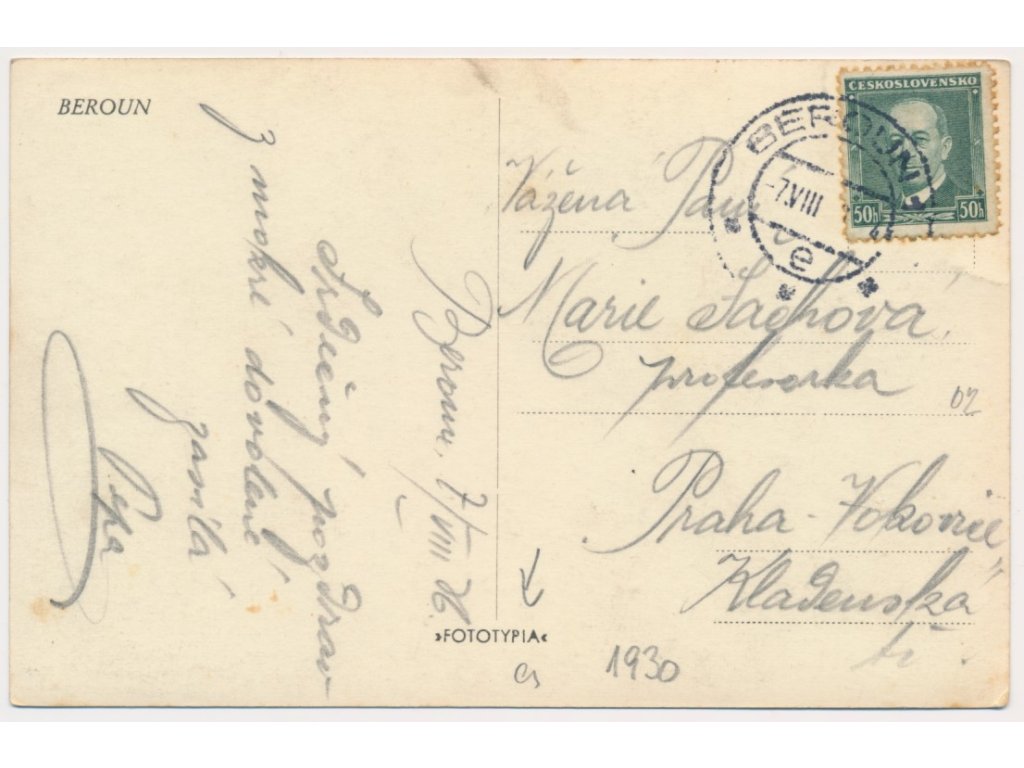 BEROUN
Beroun, 7/VIII 36.
Srdečný pozdrav
z mokré dovolené
zasílá
Pepa
»FOTOTYPIA«
ČESKOSLOVENSKO
50h 50h
BEROUN 1
-7.VIII
e
Vážená Paní
Marie Sachová,
profesorka
Praha-Vokovice
Kladenská
02
1930